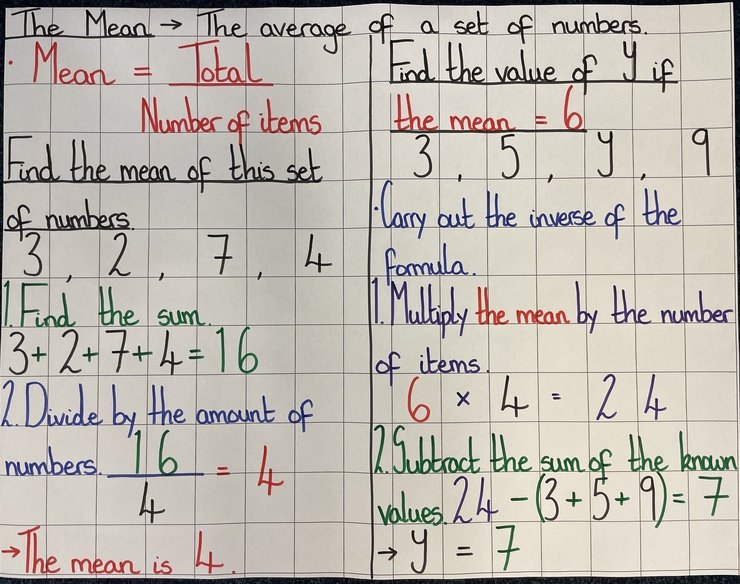 The Mean → The average of a set of numbers.
· Mean = Total
Number of items
Find the mean of this set
of numbers.
3 , 2 , 7 , 4
1. Find the sum.
3+2+7+4=16
2. Divide by the amount of
numbers. 16 = 4
4
→The mean is 4.
Find the value of y if
the mean = 6
3 , 5 , y , 9
·Carry out the inverse of the
formula.
1. Multiply the mean by the number
of items.
6 × 4 = 24
2. Subtract the sum of the known
values. 24 - (3+5+9)= 7
→ y = 7